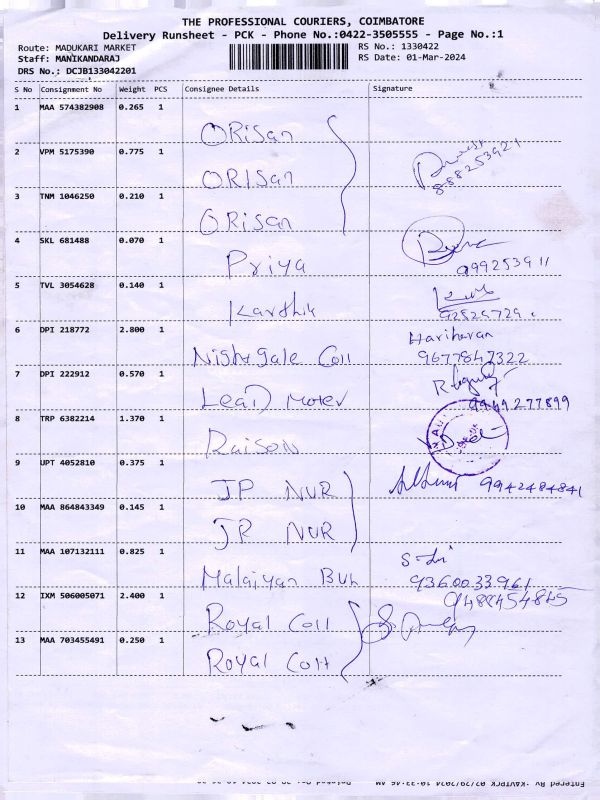 THE PROFESSIONAL COURIERS, COIMBATORE
Delivery Runsheet - PCK - Phone No.:0422-3505555 - Page No.:1
Route: MADUKARI MARKET RS No.: 1330422
Staff: MANIKANDARAJ RS Date: 01-Mar-2024
DRS No.: DCJB133042201
S No Consignment No Weight PCS Consignee Details Signature
1 MAA 574382908 0.265 1 ORisan
2 VPM 5175390 0.775 1 ORISan
3 TNM 1046250 0.210 1 ORisan
4 SKL 681488 0.070 1 Priya
5 TVL 3054628 0.140 1 Karthik
6 DPI 218772 2.800 1 Nishtgale Coll Hariharan 9677847322
7 DPI 222912 0.570 1 9949277899
8 TRP 6382214 1.370 1 Raison
9 UPT 4052810 0.375 1 JP NUR 9942484841
10 MAA 864843349 0.145 1 JR NUR
11 MAA 107132111 0.825 1 Malaiyan 9360033961
12 IXM 506005071 2.400 1 Royal Coll 9488454845
13 MAA 703455491 0.250 1 Royal Coll